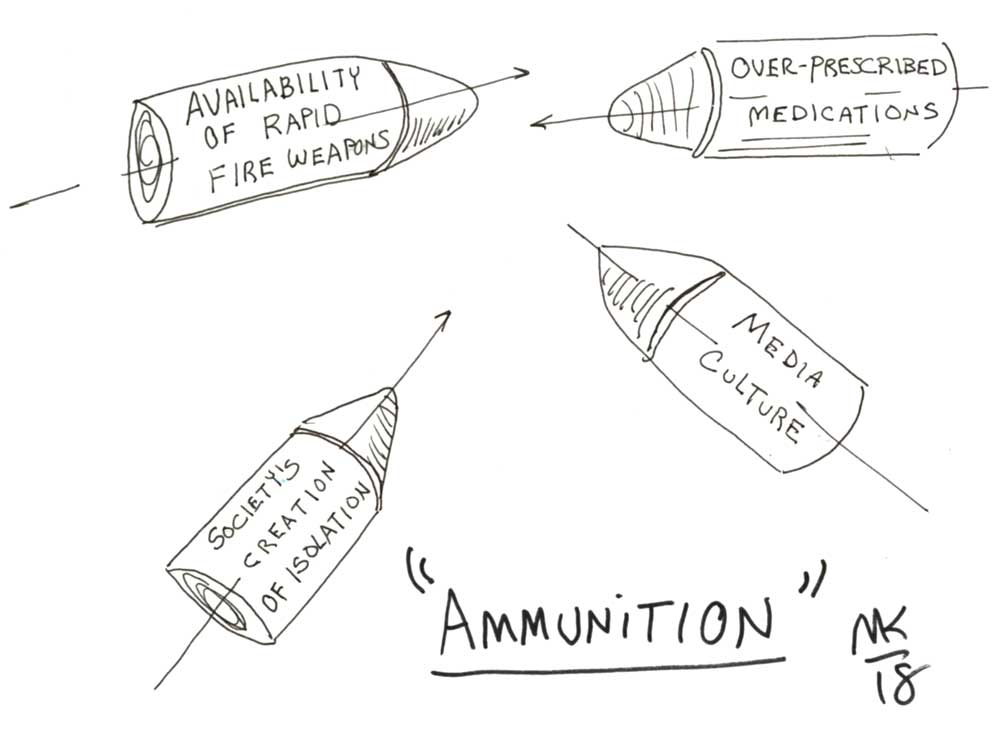 AVAILABILITY
OF RAPID
FIRE WEAPONS
OVER-PRESCRIBED
MEDICATIONS
MEDIA
CULTURE
SOCIETY'S
CREATION
OF ISOLATION
"AMMUNITION"
MK
18